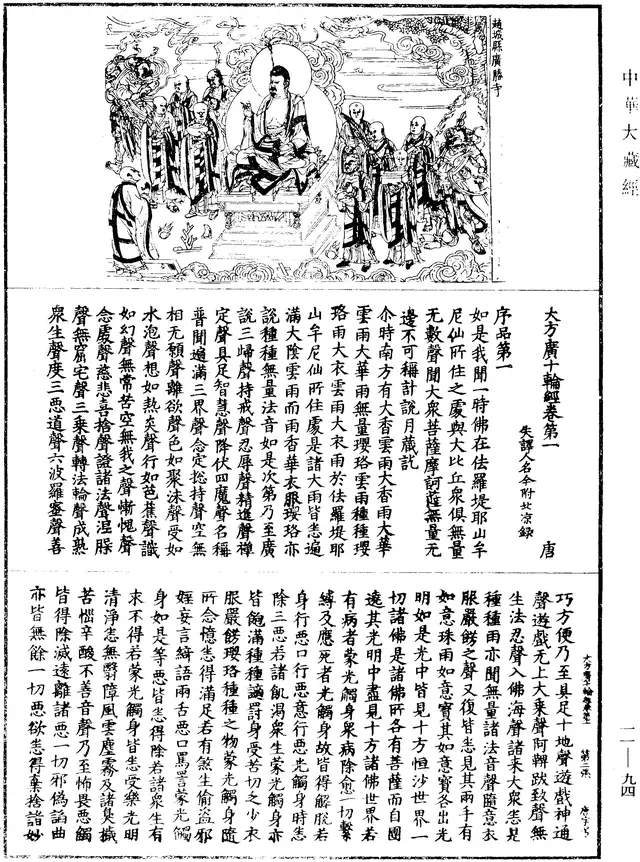 趙城縣廣勝寺
中華大藏經
大方廣十輪經卷第一
唐
失譯人名今附北涼錄
序品第一
如是我聞一時佛在佉羅堤耶山牟
尼仙所住之處與大比丘衆俱無量
無數聲聞大衆菩薩摩訶薩無量无
邊不可稱計說月藏訖
尒時南方有大香雲雨大香雨大華
雲雨大華雨無量瓔珞雲雨種種瓔
珞雨大衣雲雨大衣雨於佉羅堤耶
山牟尼仙所住處是諸大雨皆悉遍
滿大陰雲雨而雨香華衣服瓔珞亦
說種種無量法音如是次第乃至廣
說三歸聲持戒聲忍辱聲精進聲禪
定聲具足智慧聲降伏四魔聲名稱
普聞遍滿三界聲念定揔持聲空無
相无願聲離欲聲色如聚沫聲受如
水泡聲想如熱炎聲行如芭蕉聲識
如幻聲無常苦空無我之聲慚愧聲
念處聲慈悲喜捨聲證諸法聲涅槃
聲無窟宅聲三乘聲轉法輪聲成熟
衆生聲度三惡道聲六波羅蜜聲善
巧方便乃至具足十地聲遊戲神通
聲遊戲无上大乘聲阿鞞跋致聲無
生法忍聲入佛海聲諸來大衆悉見
種種雨亦聞無量諸法音聲隨意衣
服嚴飾之聲又復皆悉見其兩手有
如意珠雨如意寶其如意寶各出光
明如是光中皆見十方恒沙世界一
切諸佛是諸佛所各有菩薩而自圍
遶其光明中盡見十方諸佛世界若
有病者蒙光觸身衆病除愈一切繫
縛及應死者光觸身故皆得解脫若
身行惡口行惡意行惡光觸身時悉
除三惡若諸飢渴衆生蒙光觸身亦
皆飽滿種種讁罰身受苦切之少衣
服嚴飾瓔珞種種之物蒙光觸身隨
所念憶悉得滿足若有煞生偷盜邪
婬妄言綺語兩舌惡口罵詈蒙光觸
身如是等惡皆悉得除若諸衆生有
求不得若蒙光觸身皆悉受樂光明
清淨悉無翳障風雲塵霧及諸臭穢
苦惱辛酸不善音聲乃至怖畏惡觸
皆得除滅遠離諸惡一切邪僞諂曲
亦皆無餘一切惡欲悉得棄捨諸妙
一一—九四